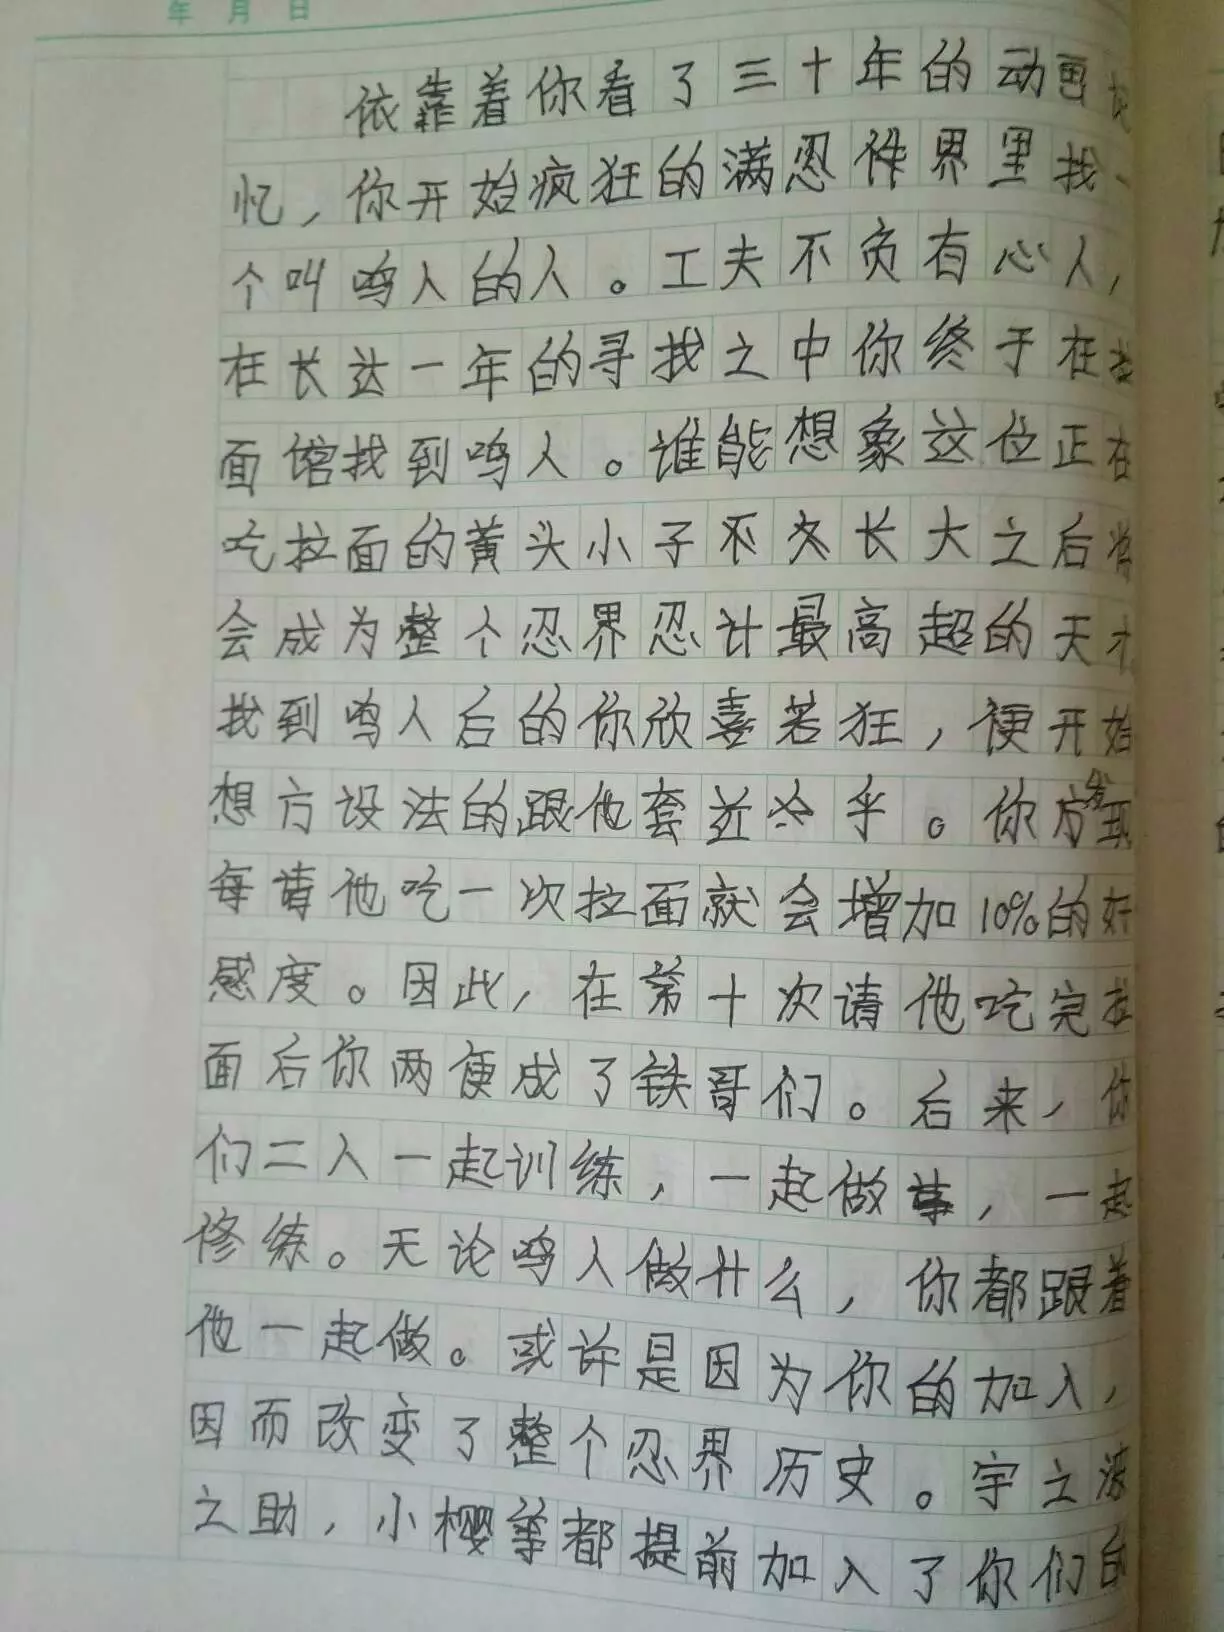 年 月 日
依靠着你看了三十年的动画
忆，你开始疯狂的满忍件界里找一
个叫鸣人的人。工夫不负有心人，
在长达一年的寻找之中你终于在拉
面馆找到鸣人。谁能想象这位正在
吃拉面的黄头小子不久长大之后将
会成为整个忍界忍计最高超的天才
找到鸣人后的你欣喜若狂，便开始
想方设法的跟他套近乎。你发现
每请他吃一次拉面就会增加10%的好
感度。因此，在第十次请他吃完拉
面后你两便成了铁哥们。后来，你
们二人一起训练，一起做事，一起
修练。无论鸣人做什么，你都跟着
他一起做。或许是因为你的加入，
因而改变了整个忍界历史。宇之波
之助，小樱等都提前加入了你们的